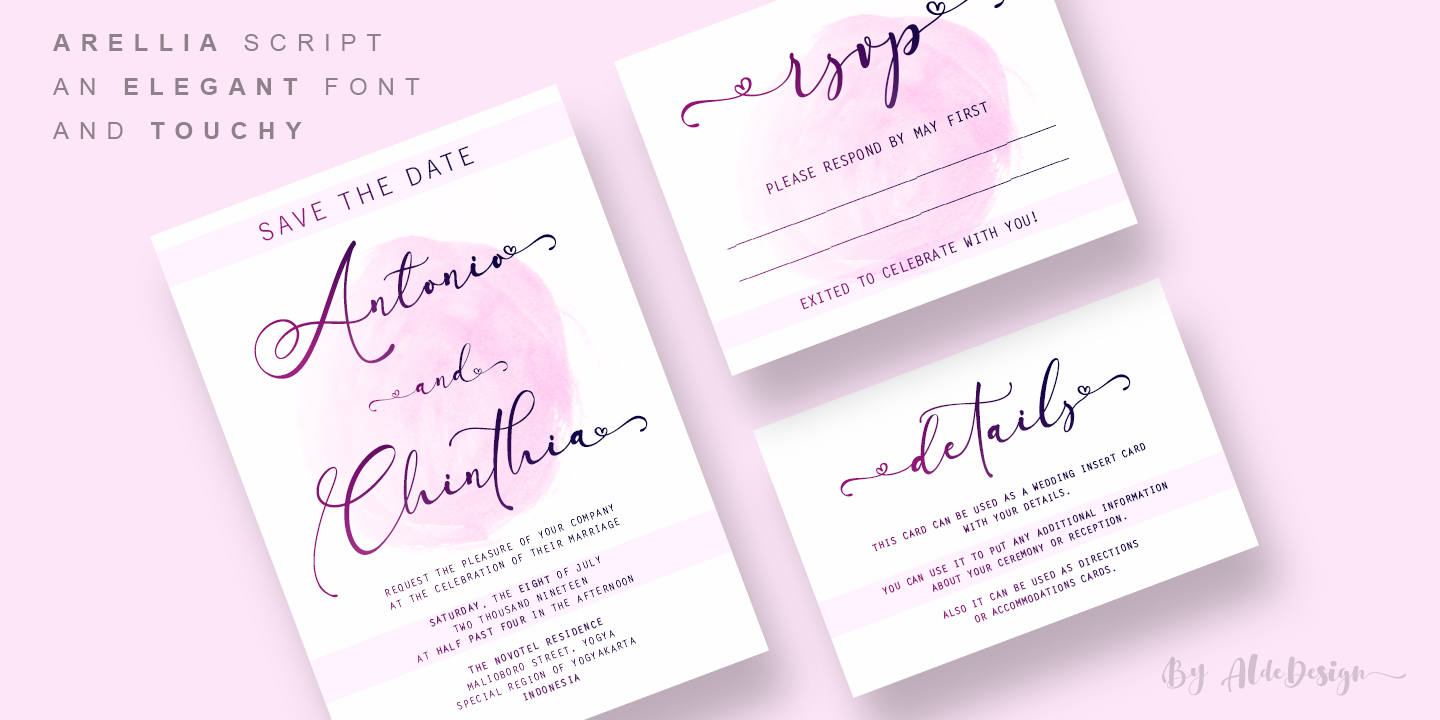 ARELLIA SCRIPT
AN ELEGANT FONT
AND TOUCHY
SAVE THE DATE
Antonio
and
Chinthia
REQUEST THE PLEASURE OF YOUR COMPANY
AT THE CELEBRATION OF THEIR MARRIAGE
SATURDAY, THE EIGHT OF JULY
TWO THOUSAND NINETEEN
AT HALF PAST FOUR IN THE AFTERNOON
THE NOVOTEL RESIDENCE
MALIOBORO STREET, YOGYA
SPECIAL REGION OF YOGYAKARTA
INDONESIA
rsvp
PLEASE RESPOND BY MAY FIRST
EXITED TO CELEBRATE WITH YOU!
details
THIS CARD CAN BE USED AS A WEDDING INSERT CARD
WITH YOUR DETAILS.
YOU CAN USE IT TO PUT ANY ADDITIONAL INFORMATION
ABOUT YOUR CEREMONY OR RECEPTION.
ALSO IT CAN BE USED AS DIRECTIONS
OR ACCOMMODATIONS CARDS.
By AldeDesign